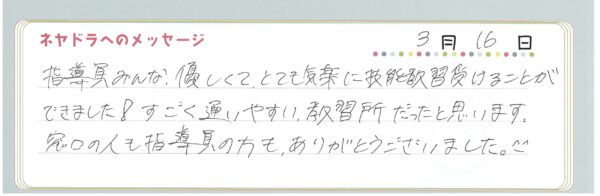 ネヤドラへのメッセージ
3月16日
指導員みんな、優しくて、とても気楽に技能教習受けることが
できました！すごく通いやすい、教習所だったと思います。
窓口の人も指導員の方も、ありがとうございました。